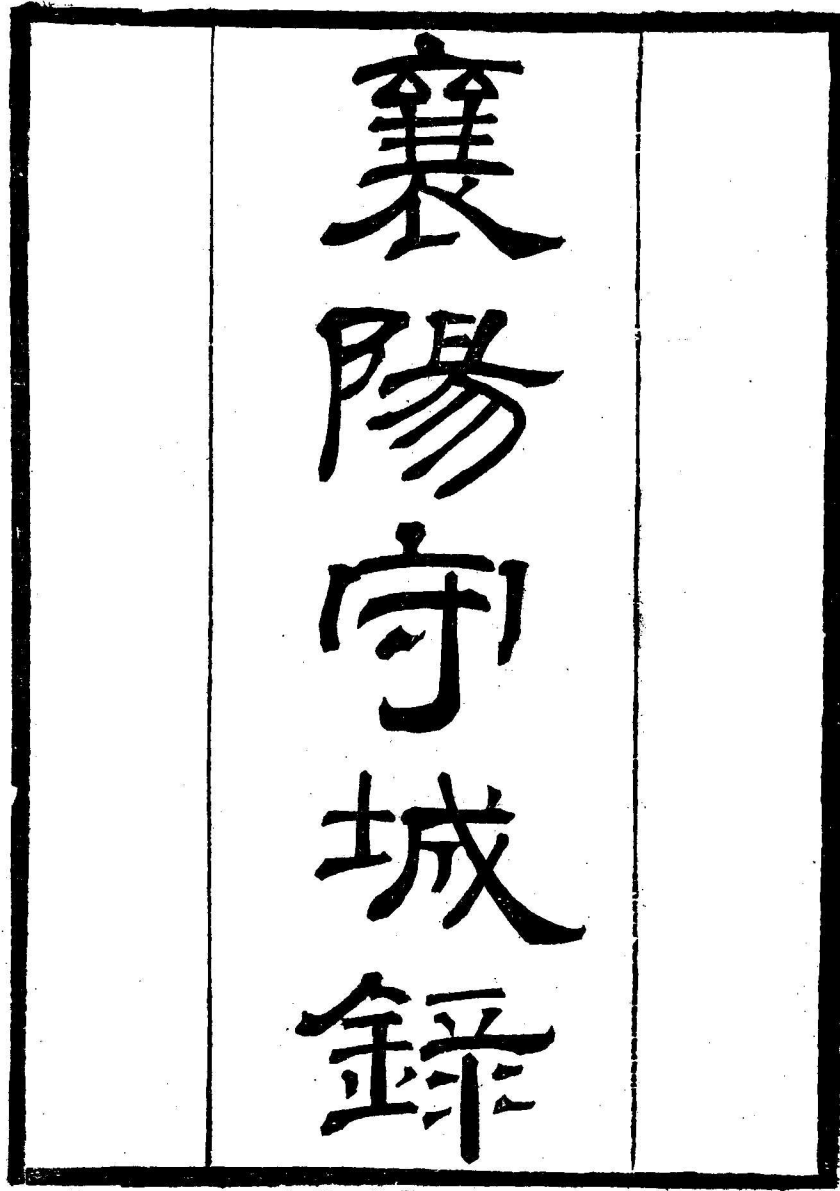 襄陽守城錄